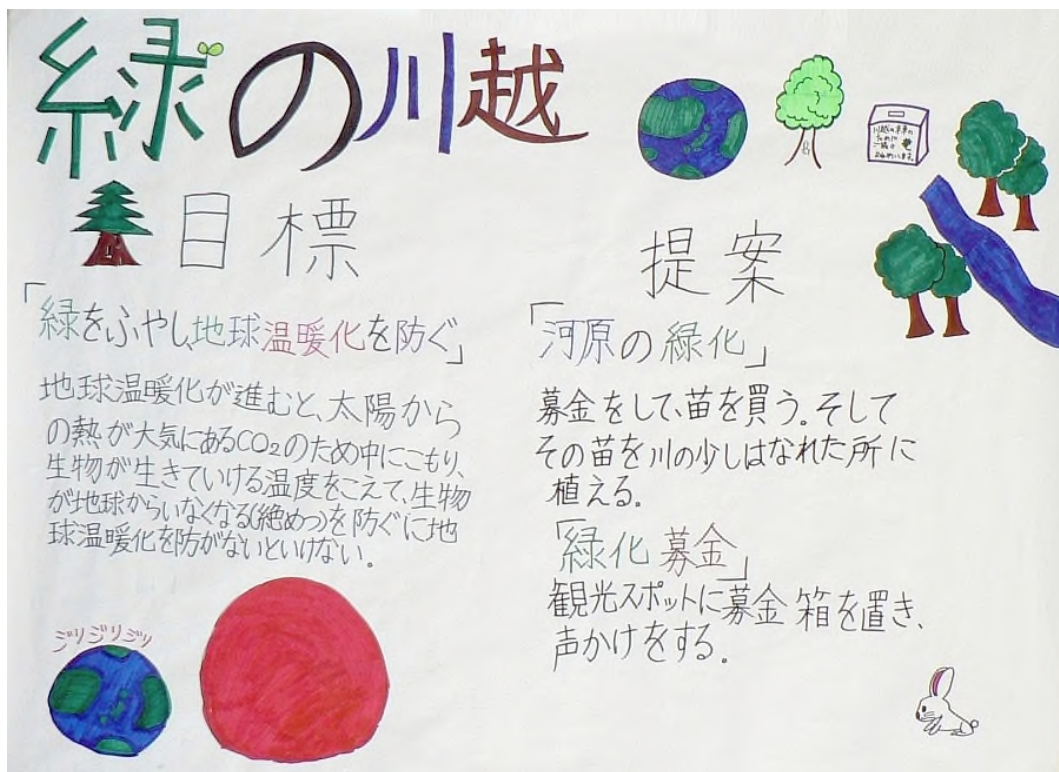 緑の川越
目標
「緑をふやし、地球温暖化を防ぐ」
地球温暖化が進むと、太陽から
の熱が大気にあるCO₂のため中にこもり、
生物が生きていける温度をこえて、生物
が地球からいなくなる(絶めつ)を防ぐに地
球温暖化を防がないといけない。
ジリジリジリ
提案
「河原の緑化」
募金をして、苗を買う。そして
その苗を川の少しはなれた所に
植える。
「緑化募金」
観光スポットに募金箱を置き、
声かけをする。
川越の未来の
ために